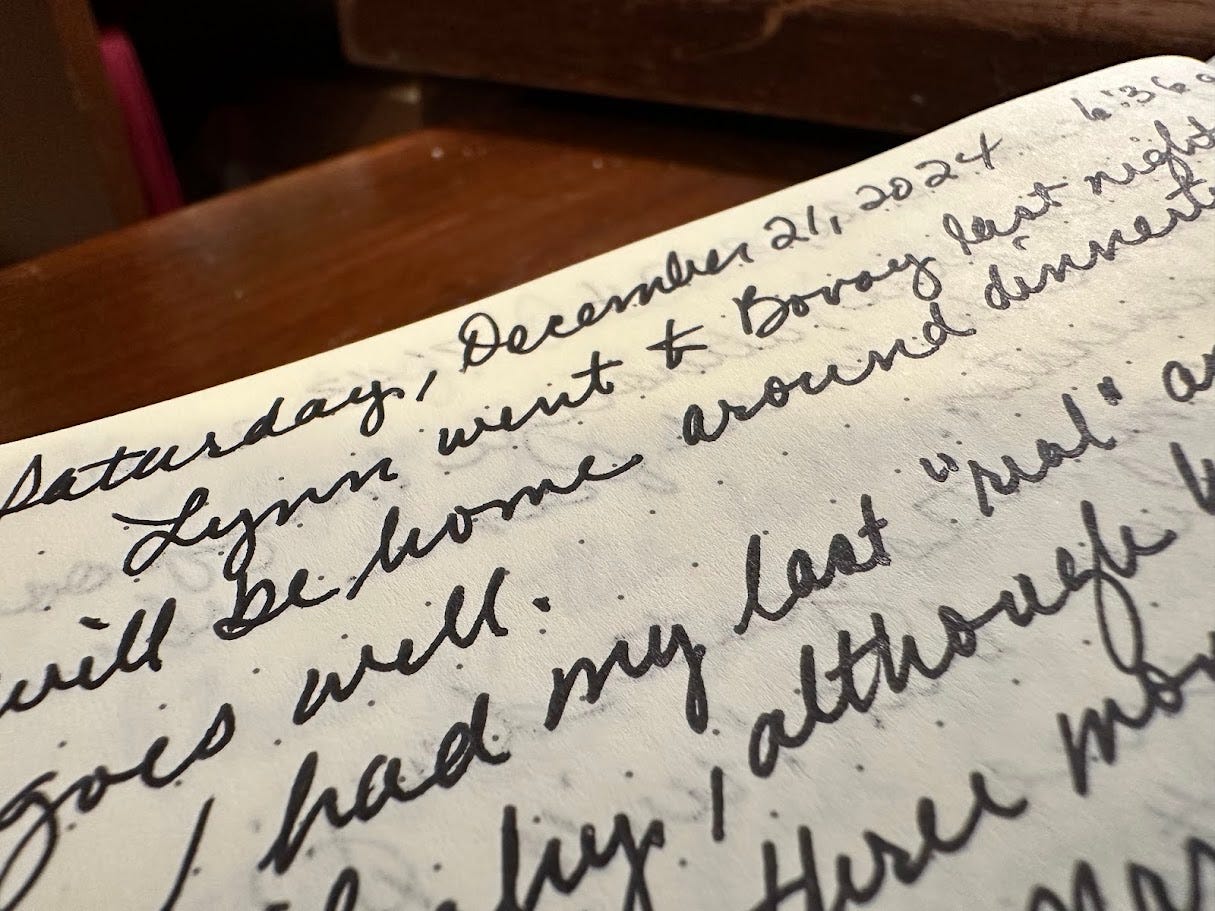 Saturday, December 21, 2024 6:36 a
Lynn went to Bovay last night
will be home around dinnert
goes well.
I had my last "real" an
although
three mor